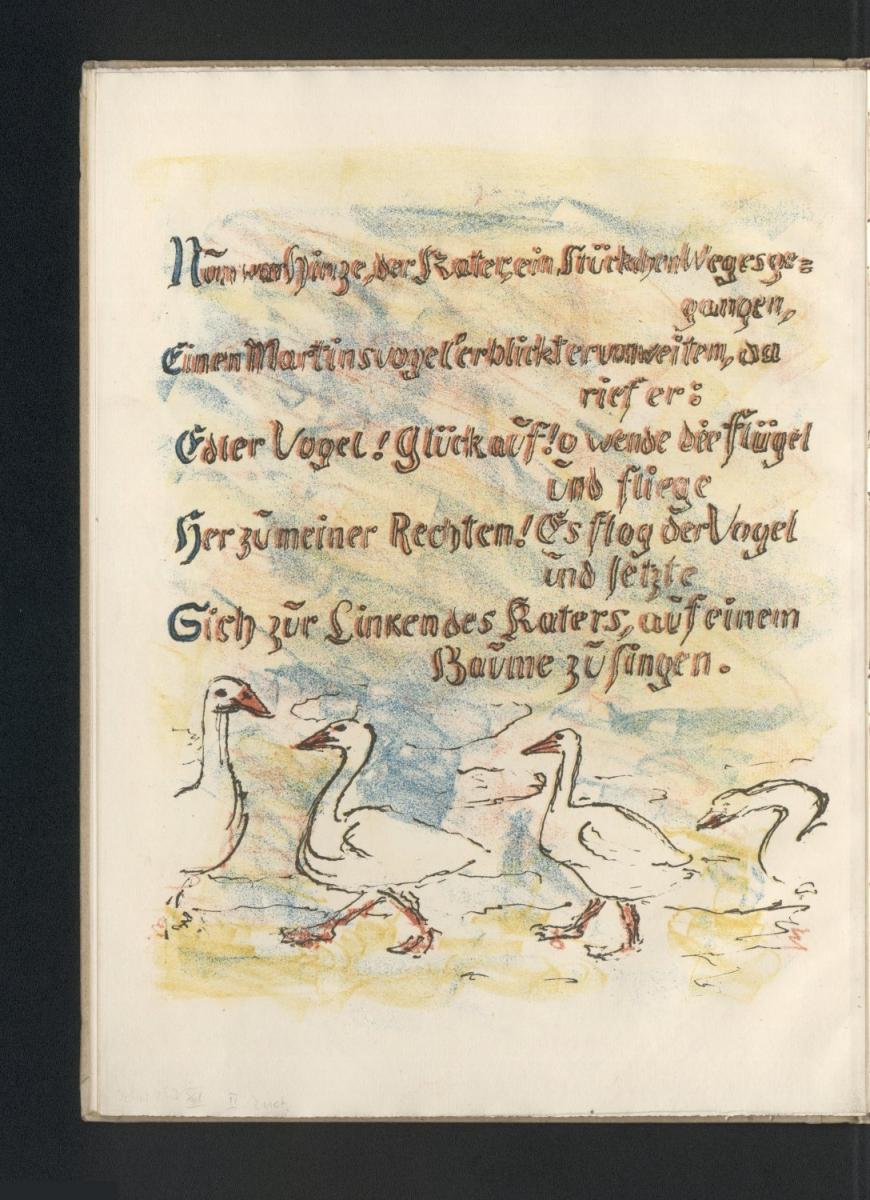 Nun war Hinze, der Kater, ein Stückchen Weges ge=
gangen,
Einen Martinsvogel erblickt er von weitem, da
rief er:
Edler Vogel! Glück auf! o wende die Flügel
und fliege
Her zu meiner Rechten! Es flog der Vogel
und setzte
Sich zur Linken des Katers, auf einem
Baume zu singen.
II